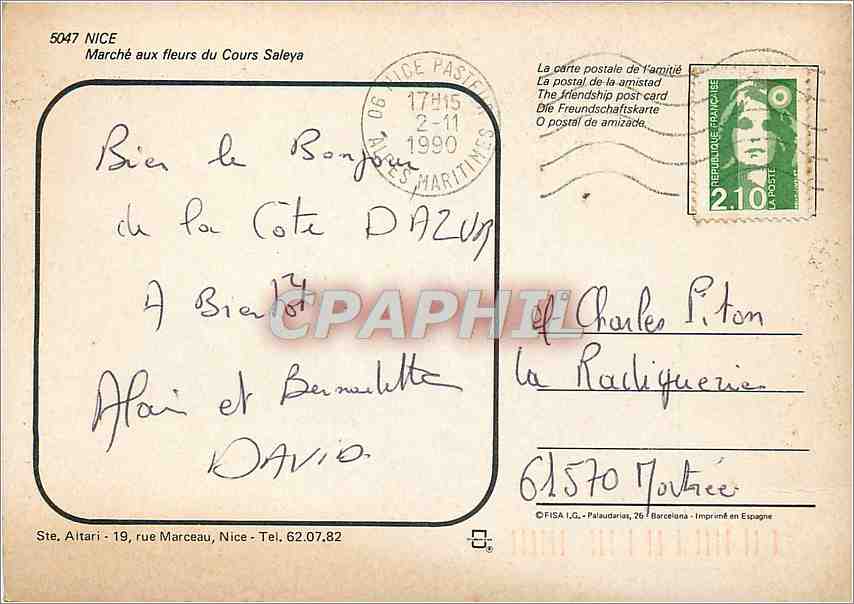 5047 NICE
Marché aux fleurs du Cours Saleya
Bien le Bonjour
de la Côte DAZUR
A Bientôt
Alain et Bernadette
DAVID
06 NICE PASTEUR
17H15
2-11
1990
ALPES MARITIMES
La carte postale de l'amitié
La postal de la amistad
The friendship post card
Die Freundschaftskarte
O postal de amizade
REPUBLIQUE FRANÇAISE
2.10
LA POSTE
CPAPHIL
Charles Piton
La Radiguerie
61570 Mortrée
© FISA I.G. - Palaudarias, 26 - Barcelona - Imprimé en Espagne
Ste. Altari - 19, rue Marceau, Nice - Tel. 62.07.82